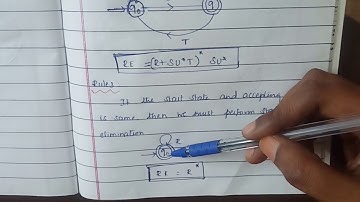 q0
q1
T
RE = (R + SU*T)* SU*
Rule 3
If the start state and accepting
is same then we must perform
elimination
R
q0
RE = R*